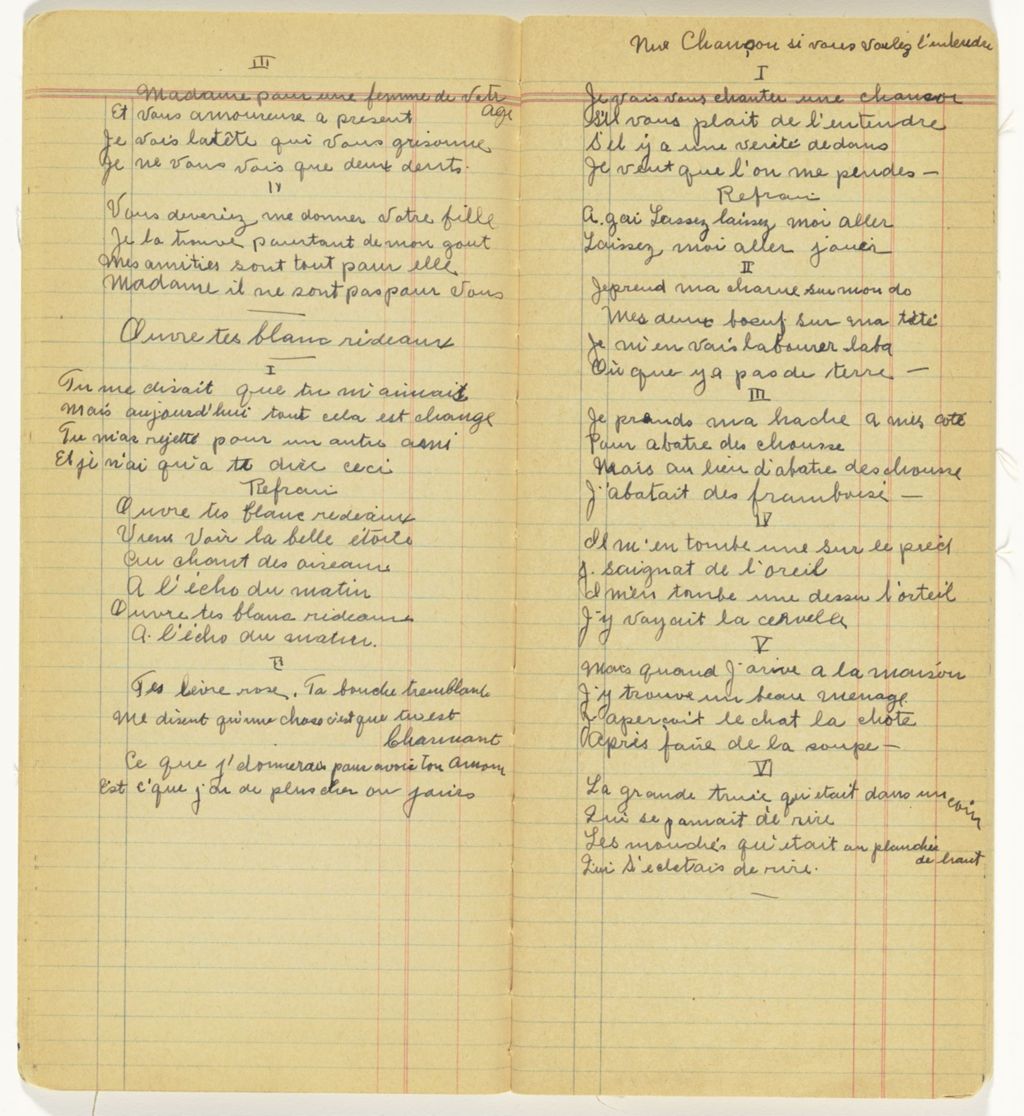 III
Madame pour une femme de votre
Age
Et vous amoureuse a present
Je vois la tête qui vous grisonne
Je ne vous vois que deux dents.
IV
Vous deveriez me donner votre fille
Je la trouve pourtant de mon gout
Mes amities sont tout pour elle
Madame il ne sont pas pour vous
Ouvre tes blanc rideaux
I
Tu me disait que tu m'aimait
Mais aujourd'hui tout cela est change
Tu m'as rejetté pour un autre ami
Et je n'ai qu'a te dire ceci
Refrain
Ouvre tes blanc rideaux
Viens voir la belle étoile
Au chant des oiseaux
A l'écho du matin
Ouvre tes blanc rideaux
A. l'écho du matin.
II
Tes levre rose. Ta bouche tremblante
Me disent qu'une chose c'est que tu est
Charmant
Ce que j'donnerais pour avoir ton Amour
Est c'que j'ai de plus cher au
Une Chançon si vous voulez l'entendre
I
Je vais vous chanter une chanson
S'il vous plait de l'entendre
S'il y a une verité dedans
Je veut que l'on me pendes —
Refrain
A. gai Laissez laissez moi aller
Laissez moi aller jouer
II
Je prend ma charue sur mon do
Mes deux boeuf sur ma tête
Je m'en vais labourer laba
Où que y a pas de terre —
III
Je prends ma hache a mes coté
Pour abatre des chousse
Mais au lieu d'abatre des chousse
J'abatait des framboise —
IV
Il m'en tombe une sur le pied
J. saignat de l'oreil
Il m'en tombe une dessu l'orteil
J'y voyait la cervelle
V
Mais quand J'arive a la maison
J'y trouve un beau menage
J'aperçoit le chat la chate
Après faire de la soupe —
VI
La grande truie qu'etait dans un coin
Qui se pamait de rire
Les mouches qu'etait au planché
de haut
Qui s'ecletais de rire.